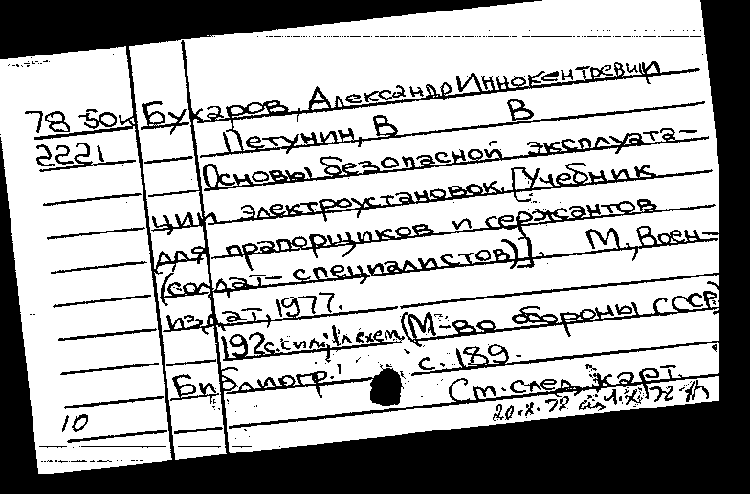 78-50к Букаров, Александр Иннокентьевич
2221 Петунин, В В
Основы безопасной эксплуата-
ции электроустановок. [Учебник
для прапорщиков и сержантов
(солдат - специалистов)]. М., Воен-
издат, 1977.
192 с. с ил.; 1 л. схем. (М-во обороны СССР)
Библиогр.: с. 189.
См. след. карт.
10